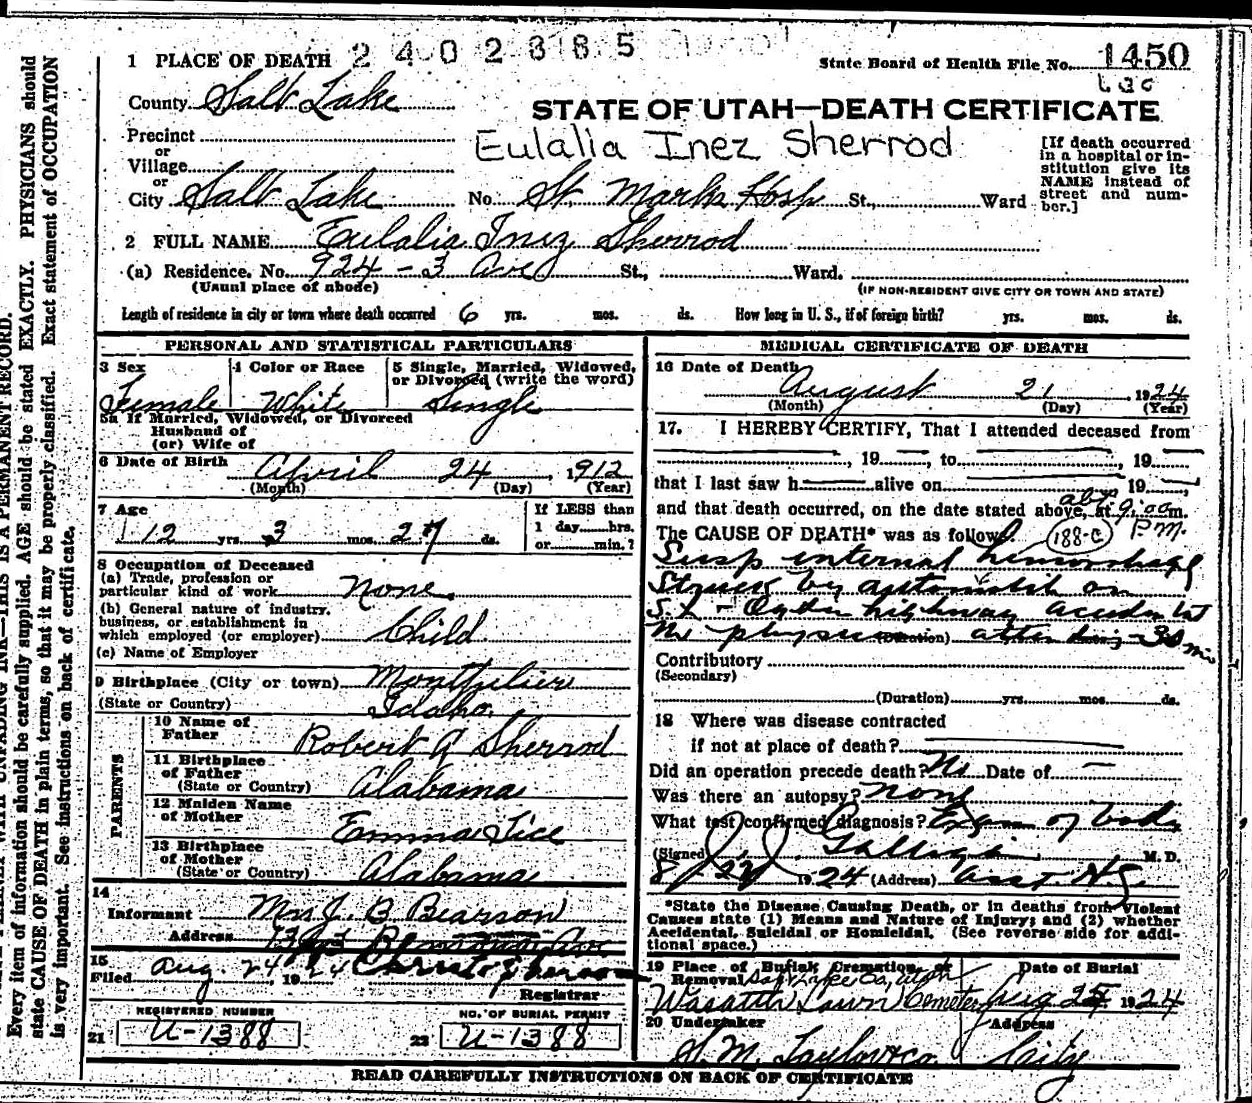 2402885
1 PLACE OF DEATH
State Board of Health File No. 1450
County Salt Lake
STATE OF UTAH—DEATH CERTIFICATE
Precinct
Eulalia Inez Sherrod
or
Village
or
City Salt Lake No. St. Marks Hosp St., Ward
[If death occurred in a hospital or in-
stitution give its
NAME instead of
street and num-
ber.]
2 FULL NAME Eulalia Inez Sherrod
(a) Residence. No. 924 - 3 Ave St., Ward.
(Usual place of abode) (IF NON-RESIDENT GIVE CITY OR TOWN AND STATE)
Length of residence in city or town where death occurred 6 yrs. mos. ds. How long in U. S., if of foreign birth? yrs. mos. ds.
PERSONAL AND STATISTICAL PARTICULARS
3 Sex
Female
4 Color or Race
White
5 Single, Married, Widowed,
or Divorced (write the word)
Single
5a If Married, Widowed, or Divorced
Husband of
(or) Wife of
6 Date of Birth April 24, 1912
(Month) (Day) (Year)
7 Age
12 yrs. 3 mos. 27 ds.
If LESS than
1 day......hrs.
or......min.?
8 Occupation of Deceased
(a) Trade, profession or
particular kind of work None.
(b) General nature of industry,
business, or establishment in
which employed (or employer) Child
(c) Name of Employer
9 Birthplace (City or town) Montpelier
(State or Country) Idaho.
PARENTS
10 Name of
Father Robert A Sherrod
11 Birthplace
of Father
(State or Country) Alabama
12 Maiden Name
of Mother Emma Tice
13 Birthplace
of Mother
(State or Country) Alabama
14
Informant Mrs J. B Bearson
Address
15
Filed Aug. 24 1924
Registrar
REGISTERED NUMBER
21 U-1388
NO. OF BURIAL PERMIT
22 U-1388
MEDICAL CERTIFICATE OF DEATH
16 Date of Death
August 21, 1924
(Month) (Day) (Year)
17. I HEREBY CERTIFY, That I attended deceased from
, 19 , to , 19
that I last saw h alive on 19 ,
and that death occurred, on the date stated above, at abt 9:00 m.
P.M.
The CAUSE OF DEATH* was as follows:
188-c
Susp internal hemorrhage
Struck by automobile on
S.L - Ogden highway accident
No physician (Duration) attending - 30 min
Contributory
(Secondary)
(Duration) yrs. mos. ds.
18 Where was disease contracted
if not at place of death?
Did an operation precede death? No Date of —
Was there an autopsy? none
What test confirmed diagnosis? Exam of body
(Signed) M. D.
8/22, 1924 (Address) Asst. H.
*State the Disease Causing Death, or in deaths from Violent
Causes state (1) Means and Nature of Injury; and (2) whether
Accidental, Suicidal or Homicidal. (See reverse side for addi-
tional space.)
19 Place of Burial, Cremation, or
Removal Salt Lake Co, Utah
Wasatch Lawn Cemetery
Date of Burial
Aug 25 1924
20 Undertaker
S. M. Taylor & co
Address
City
READ CAREFULLY INSTRUCTIONS ON BACK OF CERTIFICATE
THIS IS A PERMANENT RECORD.
Every item of information should be carefully supplied. AGE should be stated EXACTLY. PHYSICIANS should
state CAUSE OF DEATH in plain terms, so that it may be properly classified. Exact statement of OCCUPATION
is very important. See instructions on back of certificate.